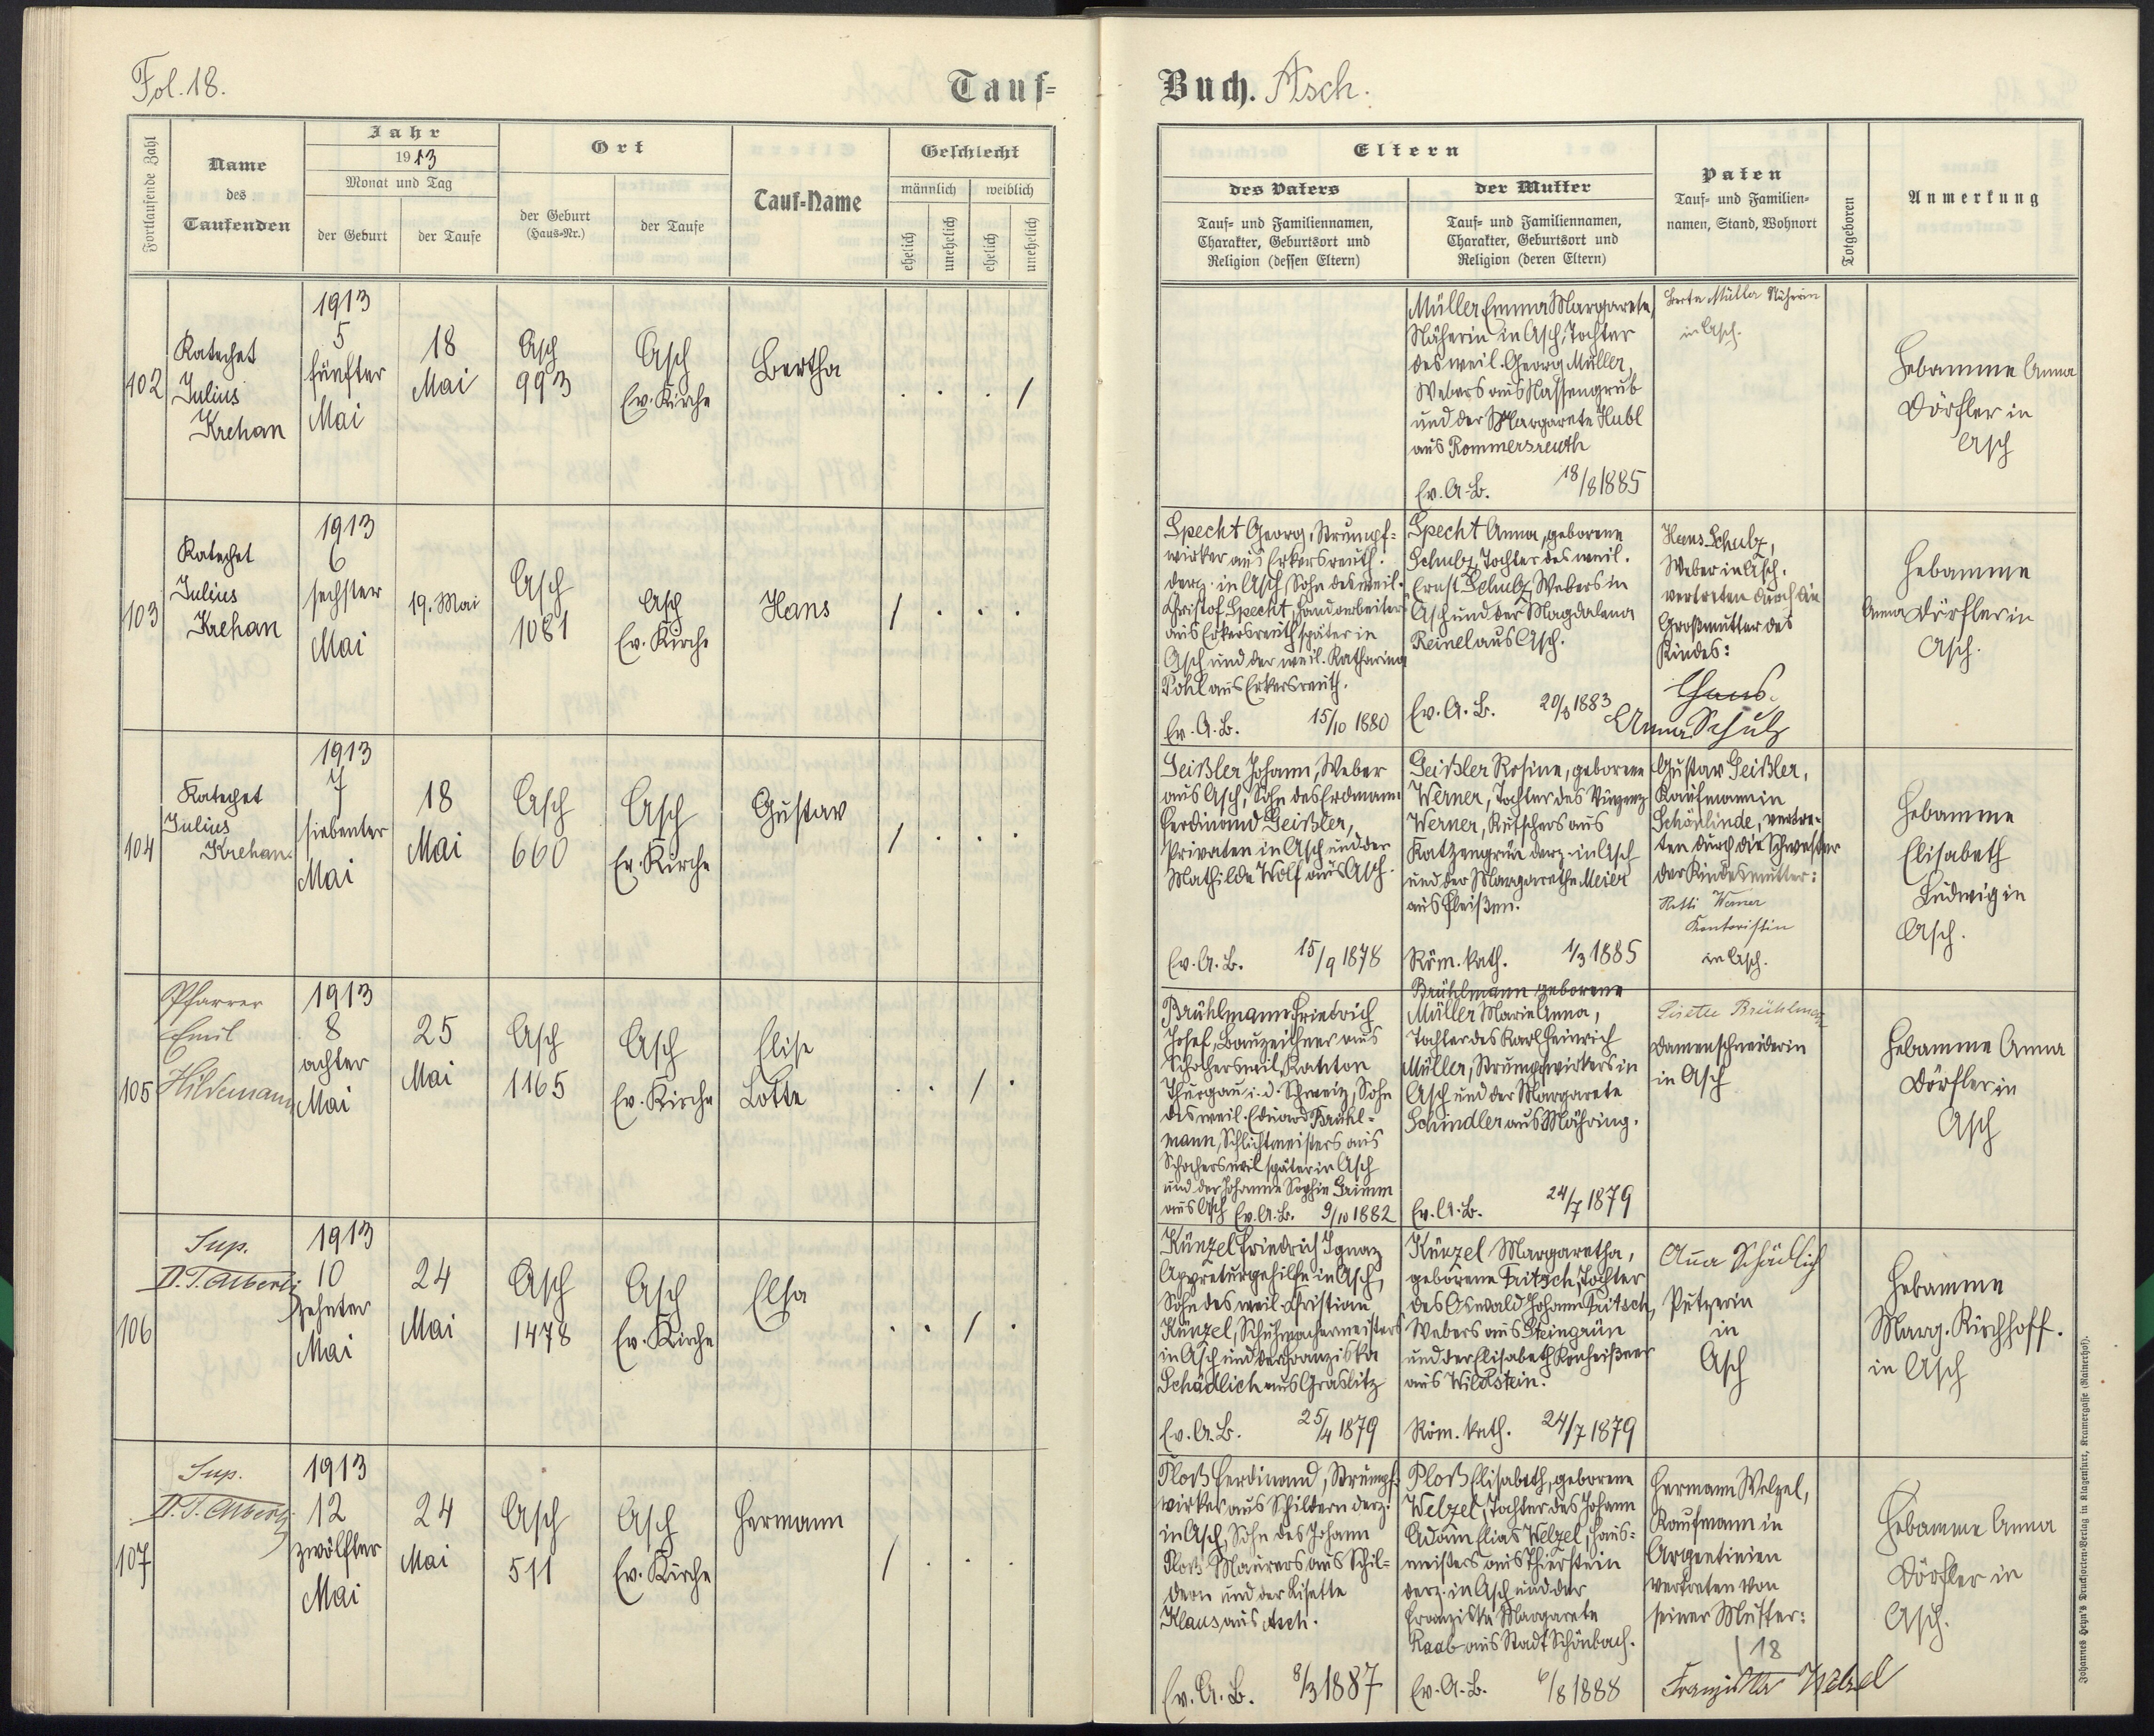 Fol. 18.
Tauf-
Buch. Asch.
Fortlaufende Zahl
Name
des
Taufenden
Jahr
1913
Monat und Tag
der Geburt
der Taufe
Ort
der Geburt
(Haus-Nr.)
der Taufe
Tauf-Name
Geschlecht
männlich
weiblich
ehelich
unehelich
ehelich
unehelich
Eltern
des Vaters
Tauf- und Familiennamen,
Charakter, Geburtsort und
Religion (dessen Eltern)
der Mutter
Tauf- und Familiennamen,
Charakter, Geburtsort und
Religion (deren Eltern)
Paten
Tauf- und Familien-
namen, Stand, Wohnort
Totgeboren
Anmerkung
102
Katechet
Julius
Krehan
1913
5
fünfter
Mai
18
Mai
Asch
993
Asch
Ev. Kirche
Bertha
. . . /
Müller Emma Margarete,
Näherin in Asch, Tochter
des weil. Georg Müller,
Webers aus Nassengrub
und der Margarete Hubl
aus Rommersreuth
Ev. A. B. 18/8 1885
Berta Müller Näherin
in Asch.
Hebamme Anna
Dörfler in
Asch
103
Katechet
Julius
Krehan
1913
6
sechster
Mai
19. Mai
Asch
1081
Asch
Ev. Kirche
Hans
/ . . .
Specht Georg, Strumpf-
wirker aus Erkersreuth.
derz. in Asch, Sohn des weil.
Christof Specht, Handarbeiters
aus Erkersreuth später in
Asch und der weil. Katharina
Pohl aus Erkersreuth.
Ev. A. B. 15/10 1880
Specht Anna, geborene
Schulz, Tochter des weil.
Ernst Schulz, Webers in
Asch und der Magdalena
Reinel aus Asch.
Ev. A. B. 20/8 1883
Hans Schulz,
Weber in Asch.
vertreten durch die
Großmutter des
Kindes:
Hans
Anna Schulz
Hebamme
Anna Dörfler in
Asch.
104
Katechet
Julius
Krehan
1913
7
siebenter
Mai
18
Mai
Asch
660
Asch
Ev. Kirche
Gustav
/ . . .
Geißler Johann, Weber
aus Asch, Sohn des Erdmann
Ferdinand Geißler,
Privaten in Asch und der
Mathilde Wolf aus Asch.
Ev. A. B. 15/9 1878
Geißler Rosine, geborene
Werner, Tochter des Vinzenz
Werner, Kutschers aus
Katzengrün derz. in Asch
und der Margarethe Meier
aus Fleißen.
Röm. kath. 1/3 1885
Gustav Geißler,
Kaufmann in
Schönlinde, vertre-
ten durch die Schwester
der Kindesmutter:
Betti Werner
Kontoristin
in Asch.
Hebamme
Elisabeth
Ludwig in
Asch.
105
Pfarrer
Emil
Hildemann
1913
8
achter
Mai
25
Mai
Asch
1165
Asch
Ev. Kirche
Elise
Lotte
. . / .
Brühlmann Friedrich
Josef, Bauzeichner aus
Schochersweil, Kanton
Thurgau i. d. Schweiz, Sohn
des weil. Eduard Brühl-
mann, Schlichtmeisters aus
Schochersweil später in Asch
und der Johanne Sophie Grimm
aus Asch Ev. A. B. 9/10 1882
Brühlmann geborene
Müller Marie Anna,
Tochter des Karl Heinrich
Müller, Strumpfwirkers in
Asch und der Margarete
Schindler aus Mähring.
Ev. A. B. 24/7 1879
Lisette Brühlmann
Damenschneiderin
in Asch
Hebamme Anna
Dörfler in
Asch
106
Sup.
D. T. Alberti
1913
10
zehnter
Mai
24
Mai
Asch
1478
Asch
Ev. Kirche
Elsa
. . / .
Künzel Friedrich Ignaz
Appreturgehilfe in Asch,
Sohn des weil. Christian
Künzel, Schuhmachermeisters
in Asch und der Franziska
Schädlich aus Graslitz
Ev. A. B. 25/4 1879
Künzel Margaretha,
geborene Fritsch, Tochter
des Oswald Johann Fritsch,
Webers aus Steingrün
und der Elisabeth Korheißner
aus Wildstein.
Röm. kath. 24/7 1879
Anna Schädlich
Putzerin
in
Asch
Hebamme
Marg. Kirchhoff.
in Asch
107
Sup.
D. T. Alberti
1913
12
zwölfter
Mai
24
Mai
Asch
511
Asch
Ev. Kirche
Hermann
/ . . .
Ploß Ferdinand, Strumpf-
wirker aus Schildern derz.
in Asch, Sohn des Johann
Ploß Maurers aus Schil-
dern und der Lisette
Klaus aus Asch.
Ev. A. B. 8/3 1887
Ploß Elisabeth, geborene
Welzel, Tochter des Johann
Adam Elias Welzel, Haus-
meisters aus Thierstein
derz. in Asch und der
Franziska Margarete
Raab aus Stadt Schönbach.
Ev. A. B. 6/8 1888
Hermann Welzel,
Kaufmann in
Argentinien
vertreten von
seiner Mutter:
18
Franziska Welzel
Hebamme Anna
Dörfler in
Asch.
Johannes Heyn's Drucksorten-Verlag in Klagenfurt, Kramergasse (Rainerhof).